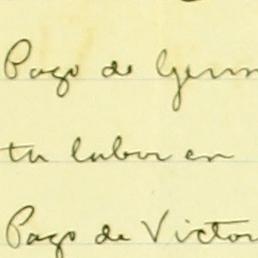 Pago de Germ
tu labor en
Pago de Victor